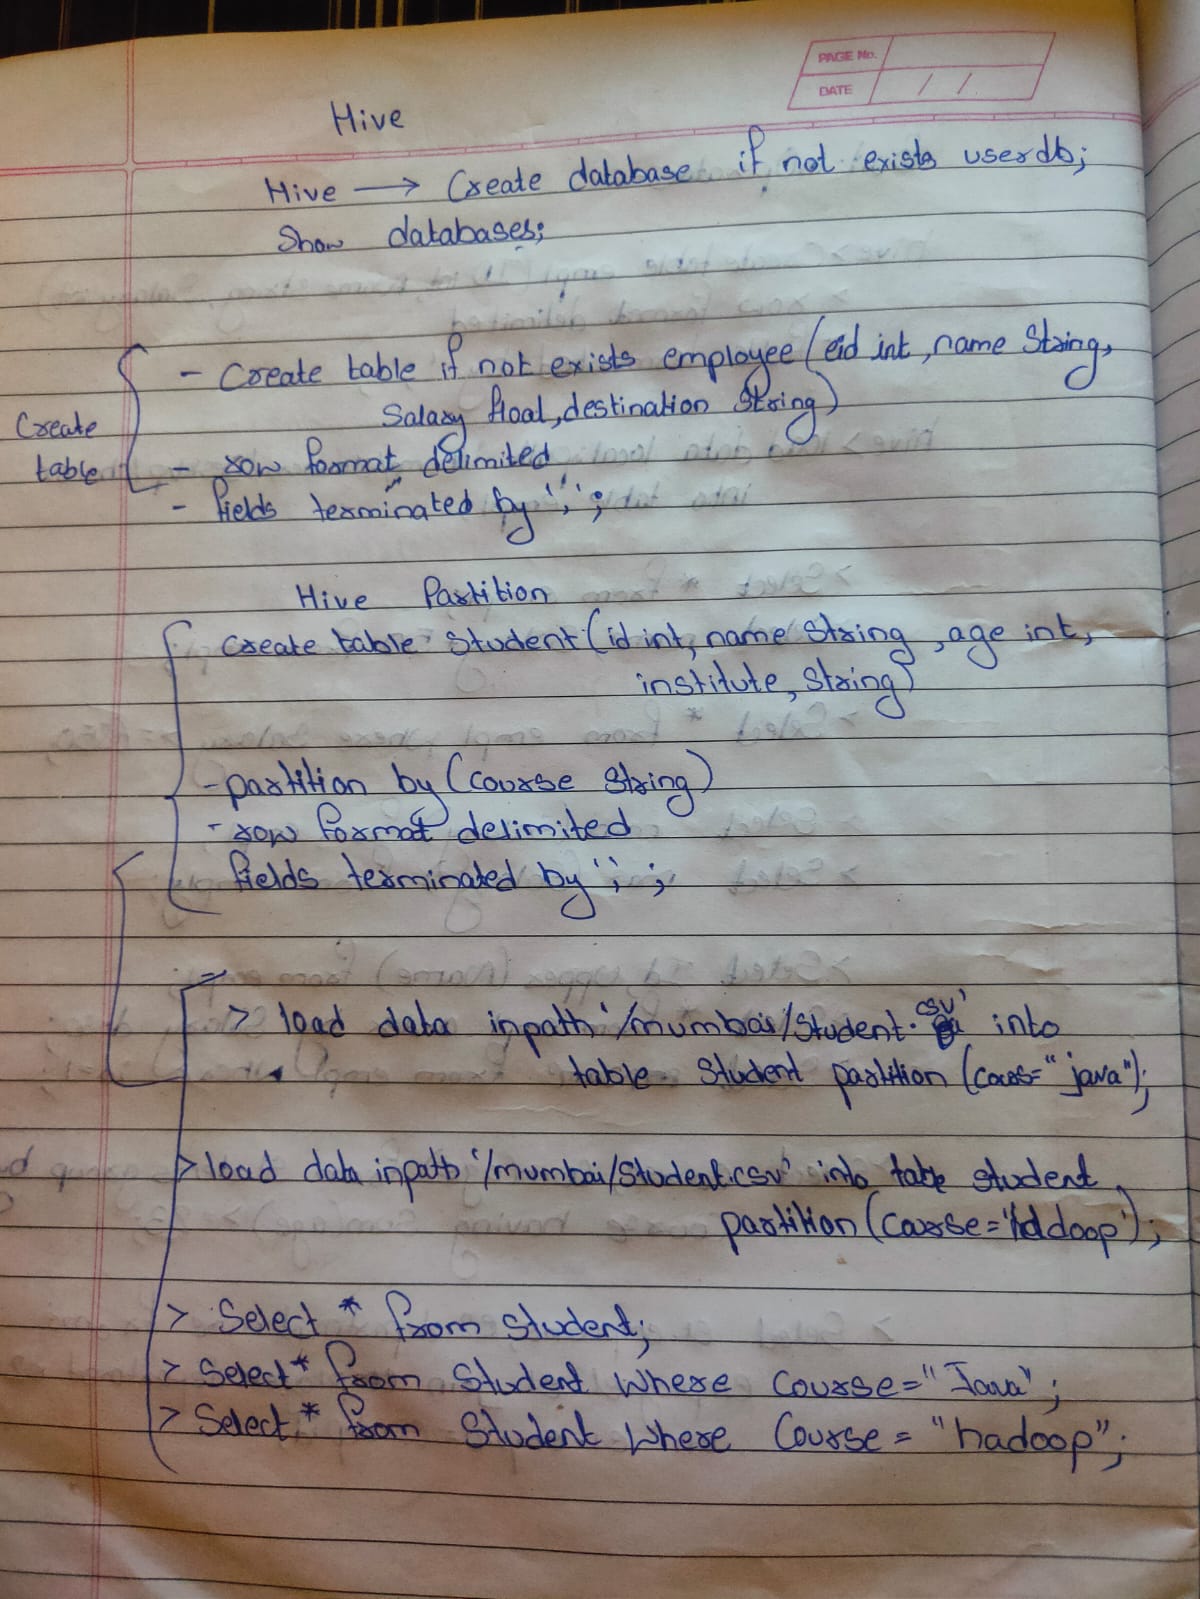 PAGE No.
DATE / /
Hive
Hive → Create database if not exists userdb;
Show databases;
- Create table if not exists employee (eid int, name String,
Salary float, destination String)
Create
table
- row format delimited
- fields terminated by ',';
Hive Partition
Create table Student (id int, name String, age int,
institute, String)
- partition by (course String)
- row format delimited
fields terminated by ',';
> load data inpath '/mumbai/Student.csv' into
table Student partition (cours="java");
> load data inpath '/mumbai/Student.csv' into table student
partition (course=
> Select * from student;
> Select * from Student Where Course="Java";
> Select * from Student Where Course = "hadoop";